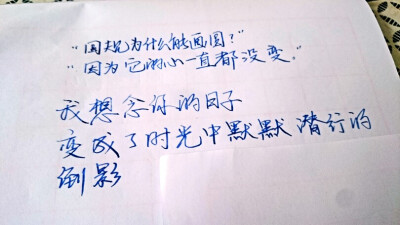 “圆规为什么能画圆？”
“因为它的心一直都没变。”
我想念你的日子
变成了时光中默默潜行的
倒影